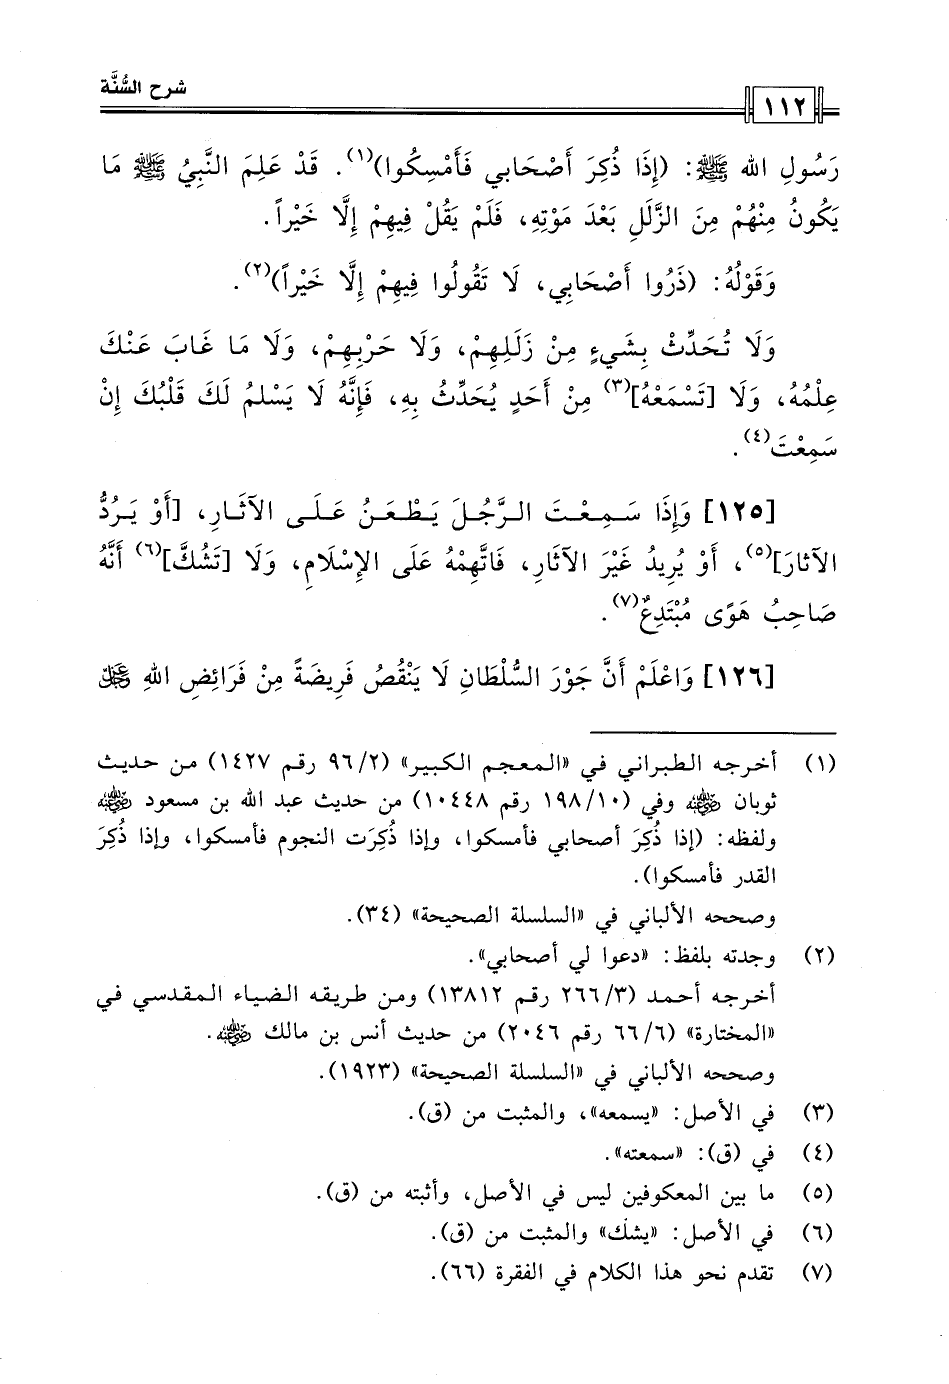 شرح السُّنَّة
١١٢
رَسُولِ الله ﷺ: (إِذَا ذُكِرَ أَصْحَابي فَأَمْسِكُوا)(١). قَدْ عَلِمَ النَّبِيُّ ﷺ مَا
يَكُونُ مِنْهُمْ مِنَ الزَّلَلِ بَعْدَ مَوْتِهِ، فَلَمْ يَقُلْ فِيهِمْ إِلَّا خَيْراً.
وَقَوْلُهُ: (ذَرُوا أَصْحَابِي، لَا تَقُولُوا فِيهِمْ إِلَّا خَيْراً)(٢).
وَلَا تُحَدِّثْ بِشَيءٍ مِنْ زَلَلِهِمْ، وَلَا حَرْبِهِمْ، وَلَا مَا غَابَ عَنْكَ
عِلْمُهُ، وَلَا [تَسْمَعْهُ](٣) مِنْ أَحَدٍ يُحَدِّثُ بِهِ، فَإِنَّهُ لَا يَسْلمُ لَكَ قَلْبُكَ إِنْ
سَمِعْتَ(٤).
[١٢٥] وَإِذَا سَمِعْتَ الرَّجُلَ يَطْعَنُ عَلَى الآثَارِ، [أَوْ يَرُدُّ
الآثَارَ](٥)، أَوْ يُرِيدُ غَيْرَ الآثَارِ، فَاتَّهِمْهُ عَلَى الإِسْلَامِ، وَلَا [تَشُكَّ](٦) أَنَّهُ
صَاحِبُ هَوًى مُبْتَدِعٌ(٧).
[١٢٦] وَاعْلَمْ أَنَّ جَوْرَ السُّلْطَانِ لَا يَنْقُصُ فَرِيضَةً مِنْ فَرَائِضِ اللهِ ﷿
(١) أخرجه الطبراني في «المعجم الكبير» (٩٦/٢ رقم ١٤٢٧) من حديث
ثوبان ﵁ وفي (١٩٨/١٠ رقم ١٠٤٤٨) من حديث عبد الله بن مسعود ﵁
ولفظه: (إذا ذُكِرَ أصحابي فأمسكوا، وإذا ذُكِرَت النجوم فأمسكوا، وإذا ذُكِرَ
القدر فأمسكوا).
وصححه الألباني في «السلسلة الصحيحة» (٣٤).
(٢) وجدته بلفظ: «دعوا لي أصحابي».
أخرجه أحمد (٢٦٦/٣ رقم ١٣٨١٢) ومن طريقه الضياء المقدسي في
«المختارة» (٦٦/٦ رقم ٢٠٤٦) من حديث أنس بن مالك ﵁.
وصححه الألباني في «السلسلة الصحيحة» (١٩٢٣).
(٣) في الأصل: «يسمعه»، والمثبت من (ق).
(٤) في (ق): «سمعته».
(٥) ما بين المعكوفين ليس في الأصل، وأثبته من (ق).
(٦) في الأصل: «يشك» والمثبت من (ق).
(٧) تقدم نحو هذا الكلام في الفقرة (٦٦).